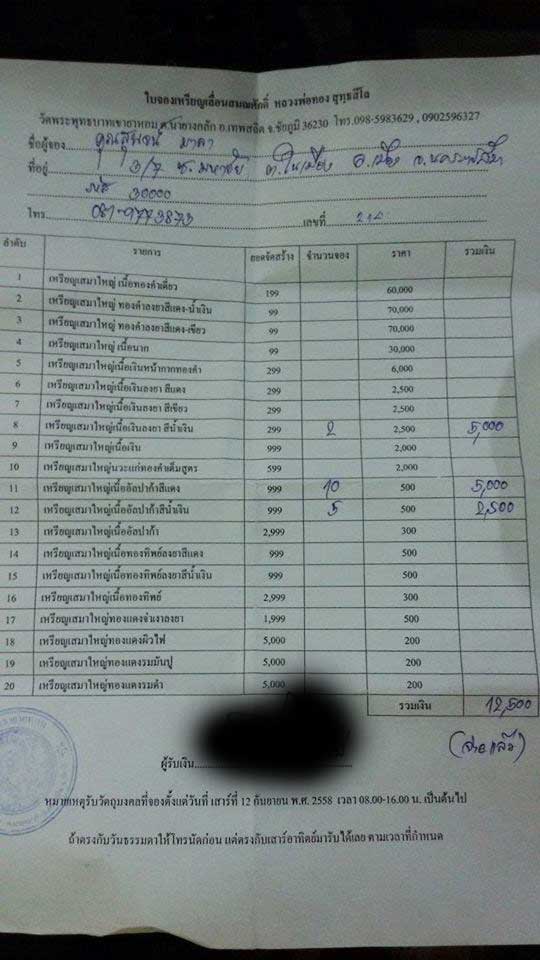 ใบจองเหรียญเลื่อนสมณศักดิ์ หลวงพ่อทอง สุทธสีโล
วัดพระพุทธบาทเขายายหอม ต.นายางกลัก อ.เทพสถิต จ.ชัยภูมิ 36230 โทร.098-5983629 , 0902596327
ชื่อผู้จอง คุณสุพจน์ มาดา
ที่อยู่ 3/7 ซ.มหาชัย ต.ในเมือง อ.เมือง จ.นครราชสีมา
รหัส 30000
โทร 081-9773873 เลขที่
ลำดับ รายการ ยอดจัดสร้าง จำนวนจอง ราคา รวมเงิน
1 เหรียญเสมาใหญ่ เนื้อทองคำเดี่ยว 199 60,000
2 เหรียญเสมาใหญ่ ทองคำลงยาสีแดง-น้ำเงิน 99 70,000
3 เหรียญเสมาใหญ่ ทองคำลงยาสีแดง-เขียว 99 70,000
4 เหรียญเสมาใหญ่ เนื้อนาก 99 30,000
5 เหรียญเสมาใหญ่เนื้อเงินหน้ากากทองคำ 299 6,000
6 เหรียญเสมาใหญ่เนื้อเงินลงยา สีแดง 299 2,500
7 เหรียญเสมาใหญ่เนื้อเงินลงยา สีเขียว 299 2,500
8 เหรียญเสมาใหญ่เนื้อเงินลงยา สีน้ำเงิน 299 2 2,500 5,000
9 เหรียญเสมาใหญ่เนื้อเงิน 999 2,000
10 เหรียญเสมาใหญ่นวะแก่ทองคำเต็มสูตร 599 2,000
11 เหรียญเสมาใหญ่เนื้ออัลปาก้าสีแดง 999 10 500 5,000
12 เหรียญเสมาใหญ่เนื้ออัลปาก้าสีน้ำเงิน 999 5 500 2,500
13 เหรียญเสมาใหญ่เนื้ออัลปาก้า 2,999 300
14 เหรียญเสมาใหญ่เนื้อทองทิพย์ลงยาสีแดง 999 500
15 เหรียญเสมาใหญ่เนื้อทองทิพย์ลงยาสีน้ำเงิน 999 500
16 เหรียญเสมาใหญ่เนื้อทองทิพย์ 2,999 300
17 เหรียญเสมาใหญ่ทองแดงชำเงาลงยา 1,999 500
18 เหรียญเสมาใหญ่ทองแดงผิวไฟ 5,000 200
19 เหรียญเสมาใหญ่ทองแดงรมมันปู 5,000 200
20 เหรียญเสมาใหญ่ทองแดงรมดำ 5,000 200
รวมเงิน 12,500
(จ่ายแล้ว)
ผู้รับเงิน
หมายเหตุรับวัตถุมงคลที่จองตั้งแต่วันที่ เสาร์ที่ 12 กันยายน พ.ศ. 2558 เวลา 08.00-16.00 น. เป็นต้นไป
ถ้าตรงกับวันธรรมดาให้โทรนัดก่อน แต่ตรงกับเสาร์อาทิตย์มารับได้เลย ตามเวลาที่กำหนด